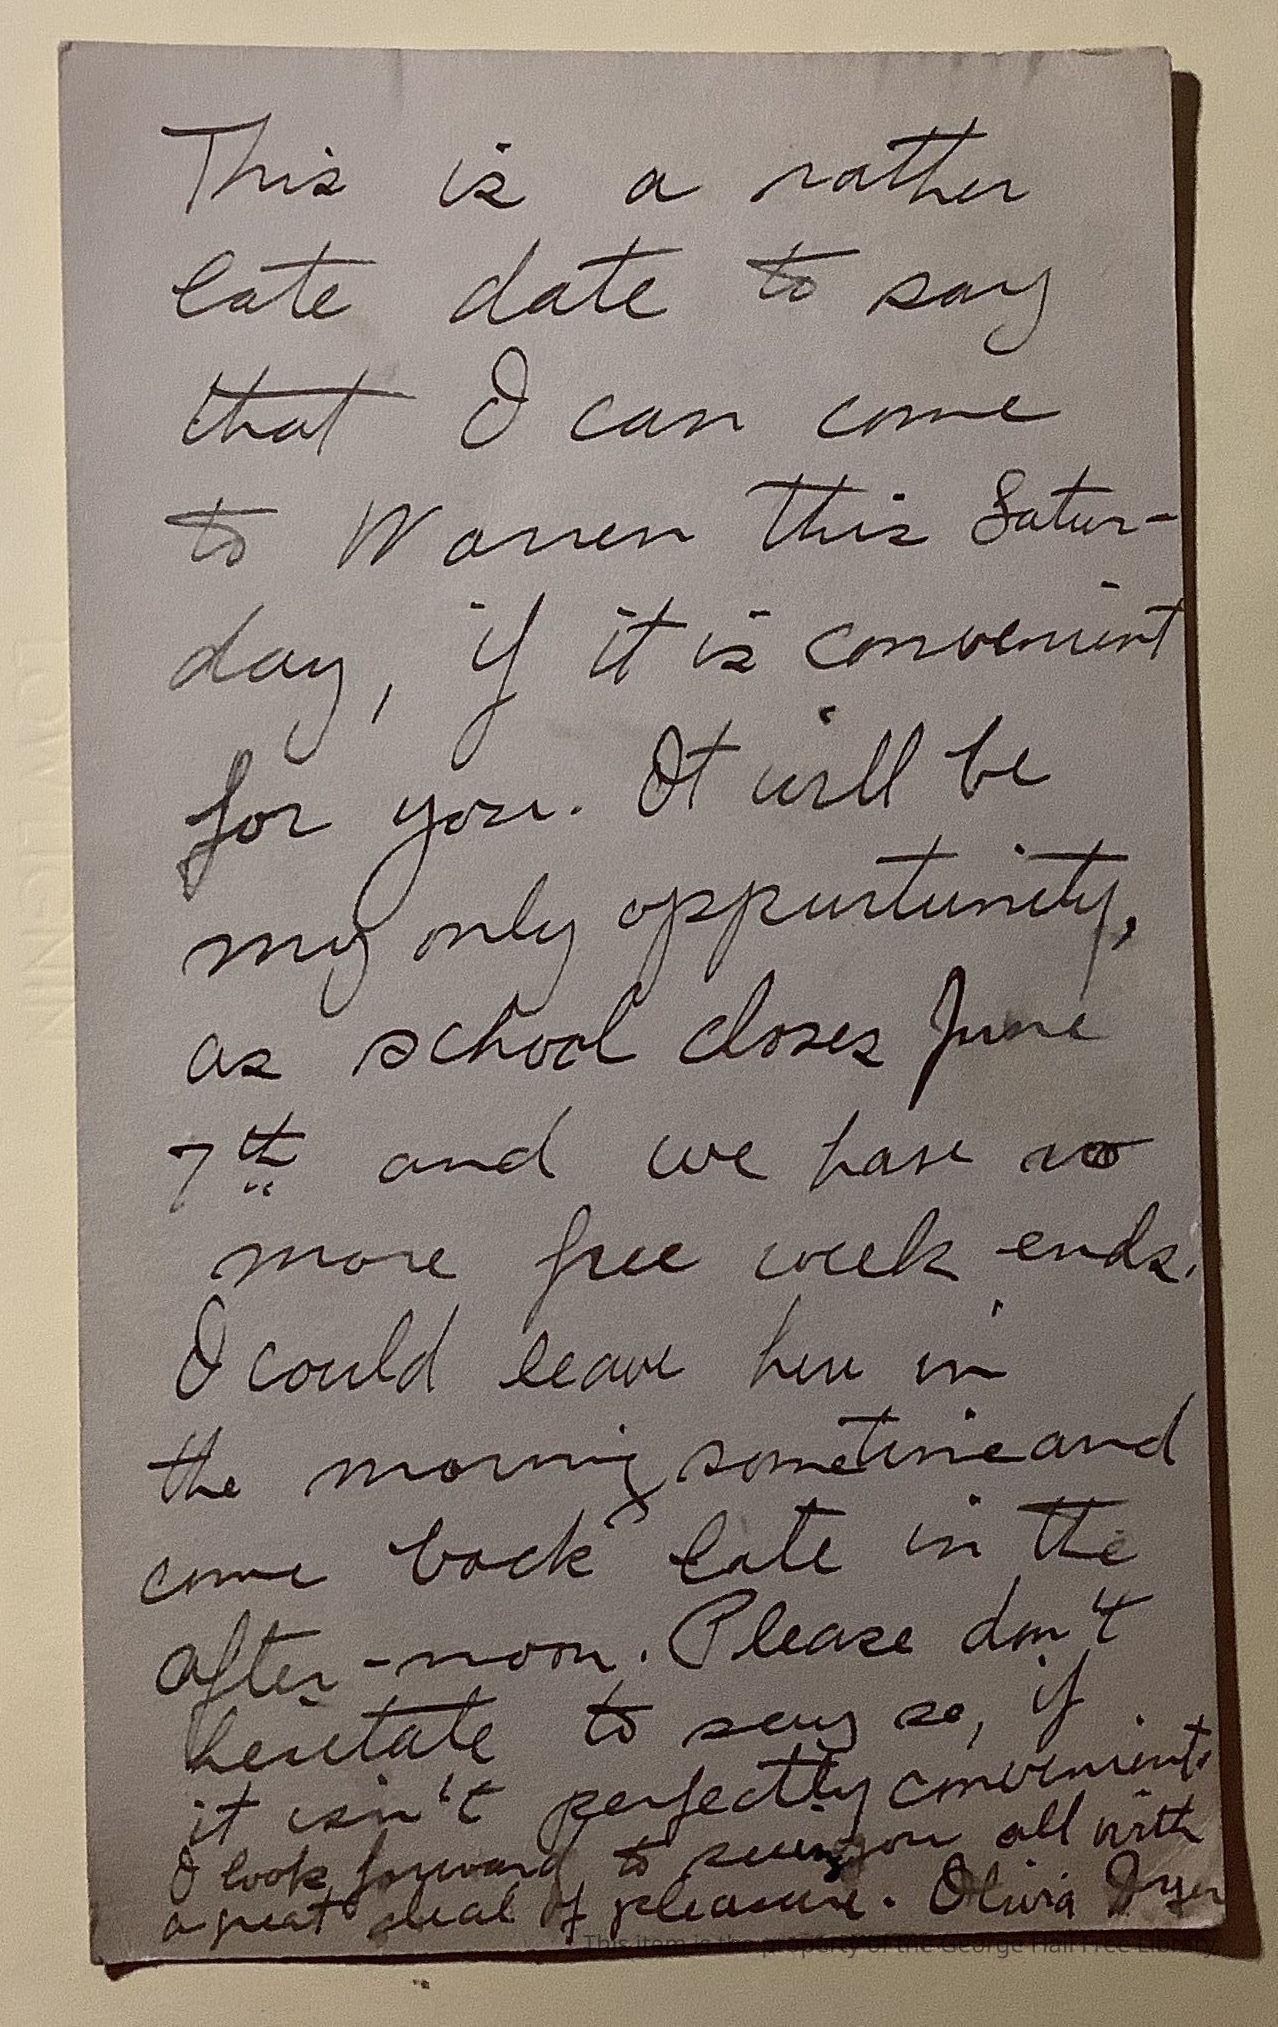 This is a rather
late date to say
that I can come
to Warren this Satur-
day, if it is convenient
for you. It will be
my only oppurtunity,
as school closes June
7th and we have no
more free week ends.
I could leave here in
the morning sometime and
come back late in the
after-noon. Please don't
hesitate to say so, if
it isn't perfectly convenient.
I look forward to seeing you all with
a great deal of pleasure. Olivia Dyer
This item is the property of the George Hail Free Library